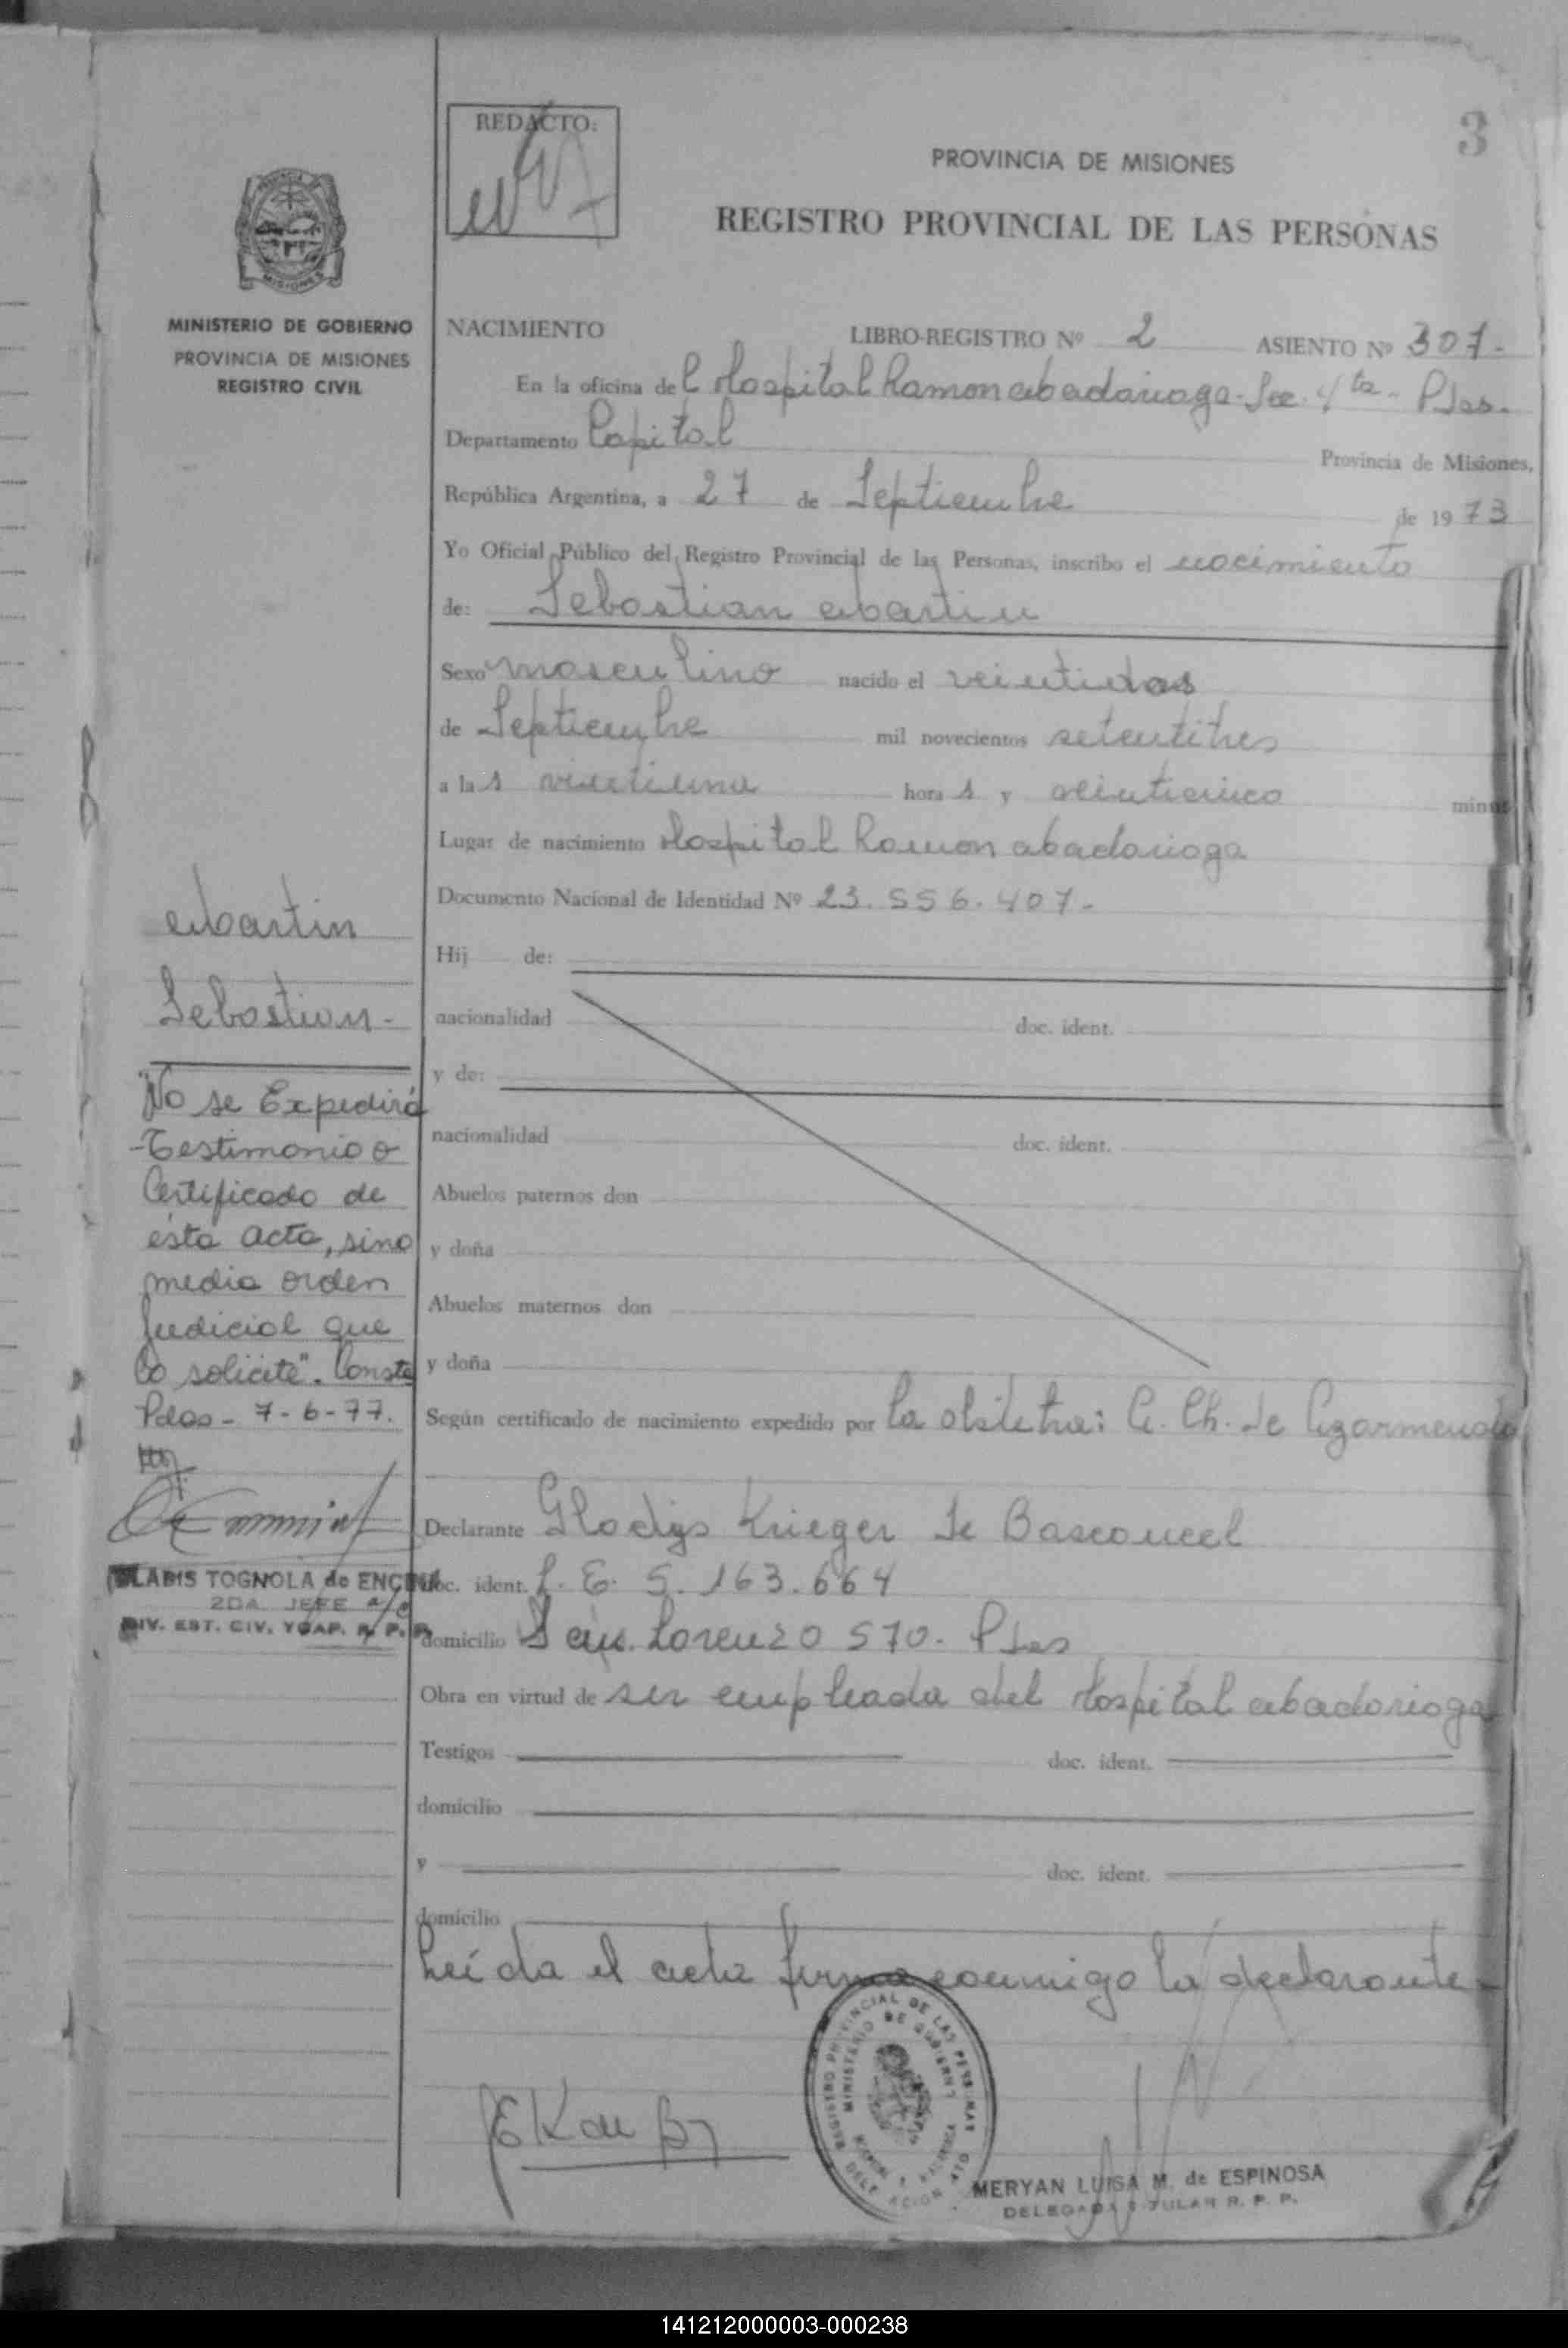 REDACTO:
3
PROVINCIA DE MISIONES
REGISTRO PROVINCIAL DE LAS PERSONAS
MISIONES
MINISTERIO DE GOBIERNO
PROVINCIA DE MISIONES
REGISTRO CIVIL
NACIMIENTO LIBRO-REGISTRO Nº 2 ASIENTO Nº 307.-
En la oficina del Hospital Ramon Madariaga - Sec. 4ta - Pdas.
Departamento Capital Provincia de Misiones,
República Argentina, a 27 de Septiembre de 1973
Yo Oficial Público del Registro Provincial de las Personas, inscribo el nacimiento
de: Sebastian Martin
Sexo masculino nacido el veintidos
de Septiembre mil novecientos setentitres
a las veintiuna horas y veinticinco minut
Lugar de nacimiento Hospital Ramon Madariaga
Documento Nacional de Identidad Nº 23.556.407.-
Hij de:
nacionalidad doc. ident.
y de:
nacionalidad doc. ident.
Abuelos paternos don
y doña
Abuelos maternos don
y doña
Según certificado de nacimiento expedido por la obstetra: C. Ch. de
Declarante Gladys Krieger de Basconcel
doc. ident. L. E. 5.163.664
domicilio San Lorenzo 570.- Pdas
Obra en virtud de ser empleada del Hospital Madariaga
Testigos doc. ident.
domicilio
y doc. ident.
domicilio
Leída el acta firma conmigo la declarante-
Martin
Sebastian.-
"No se Expedirá
Testimonio o
Certificado de
ésta acta, sino
media orden
Judicial que
lo solicite". Conste
Pdas - 7-6-77.
GLADIS TOGNOLA de ENCINA
2DA JEFE a/c
DIV. EST. CIV. Y CAP. R. P. P.
REGISTRO PROVINCIAL DE LAS PERSONAS
MINISTERIO DE GOBIERNO
MERYAN LUISA M. de ESPINOSA
DELEGADA TITULAR R. P. P.
141212000003-000238